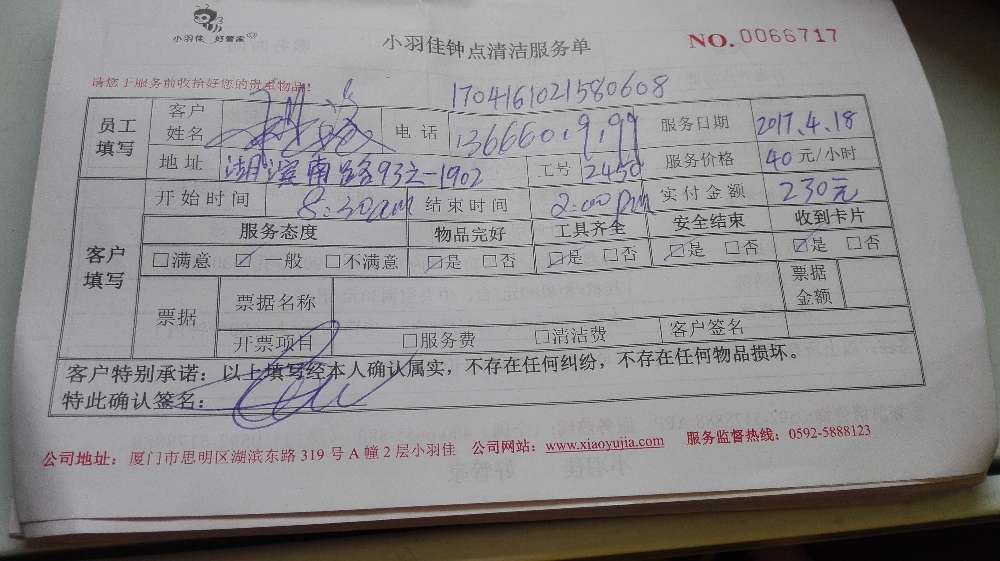 小羽佳 好管家
小羽佳钟点清洁服务单
NO.0066717
请您于服务前收拾好您的贵重物品!
17041610215806​08
员工填写 客户姓名 电话 服务日期 2017.4.18
地址 湖滨南路93之-1902 工号 2450 服务价格 40元/小时
客户填写 开始时间 8:30am 结束时间 2:00pm 实付金额 230元
服务态度 物品完好 工具齐全 安全结束 收到卡片
□满意 ☑一般 □不满意 ☑是 □否 ☑是 □否 ☑是 □否 ☑是 □否
票据 票据名称 票据金额
开票项目 □服务费 □清洁费 客户签名
客户特别承诺：以上填写经本人确认属实，不存在任何纠纷，不存在任何物品损坏。
特此确认签名：
公司地址：厦门市思明区湖滨东路319号A幢2层小羽佳 公司网站：www.xiaoyujia.com 服务监督热线：0592-5888123